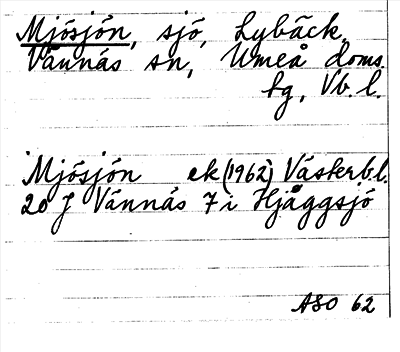 Mjösjön, sjö, Lybäck,
Vännäs sn, Umeå doms.
tg, Vb. l.
Mjösjön ek (1962) Västerb.l.
20 J Vännäs 7 i Hjåggsjö
ASO 62